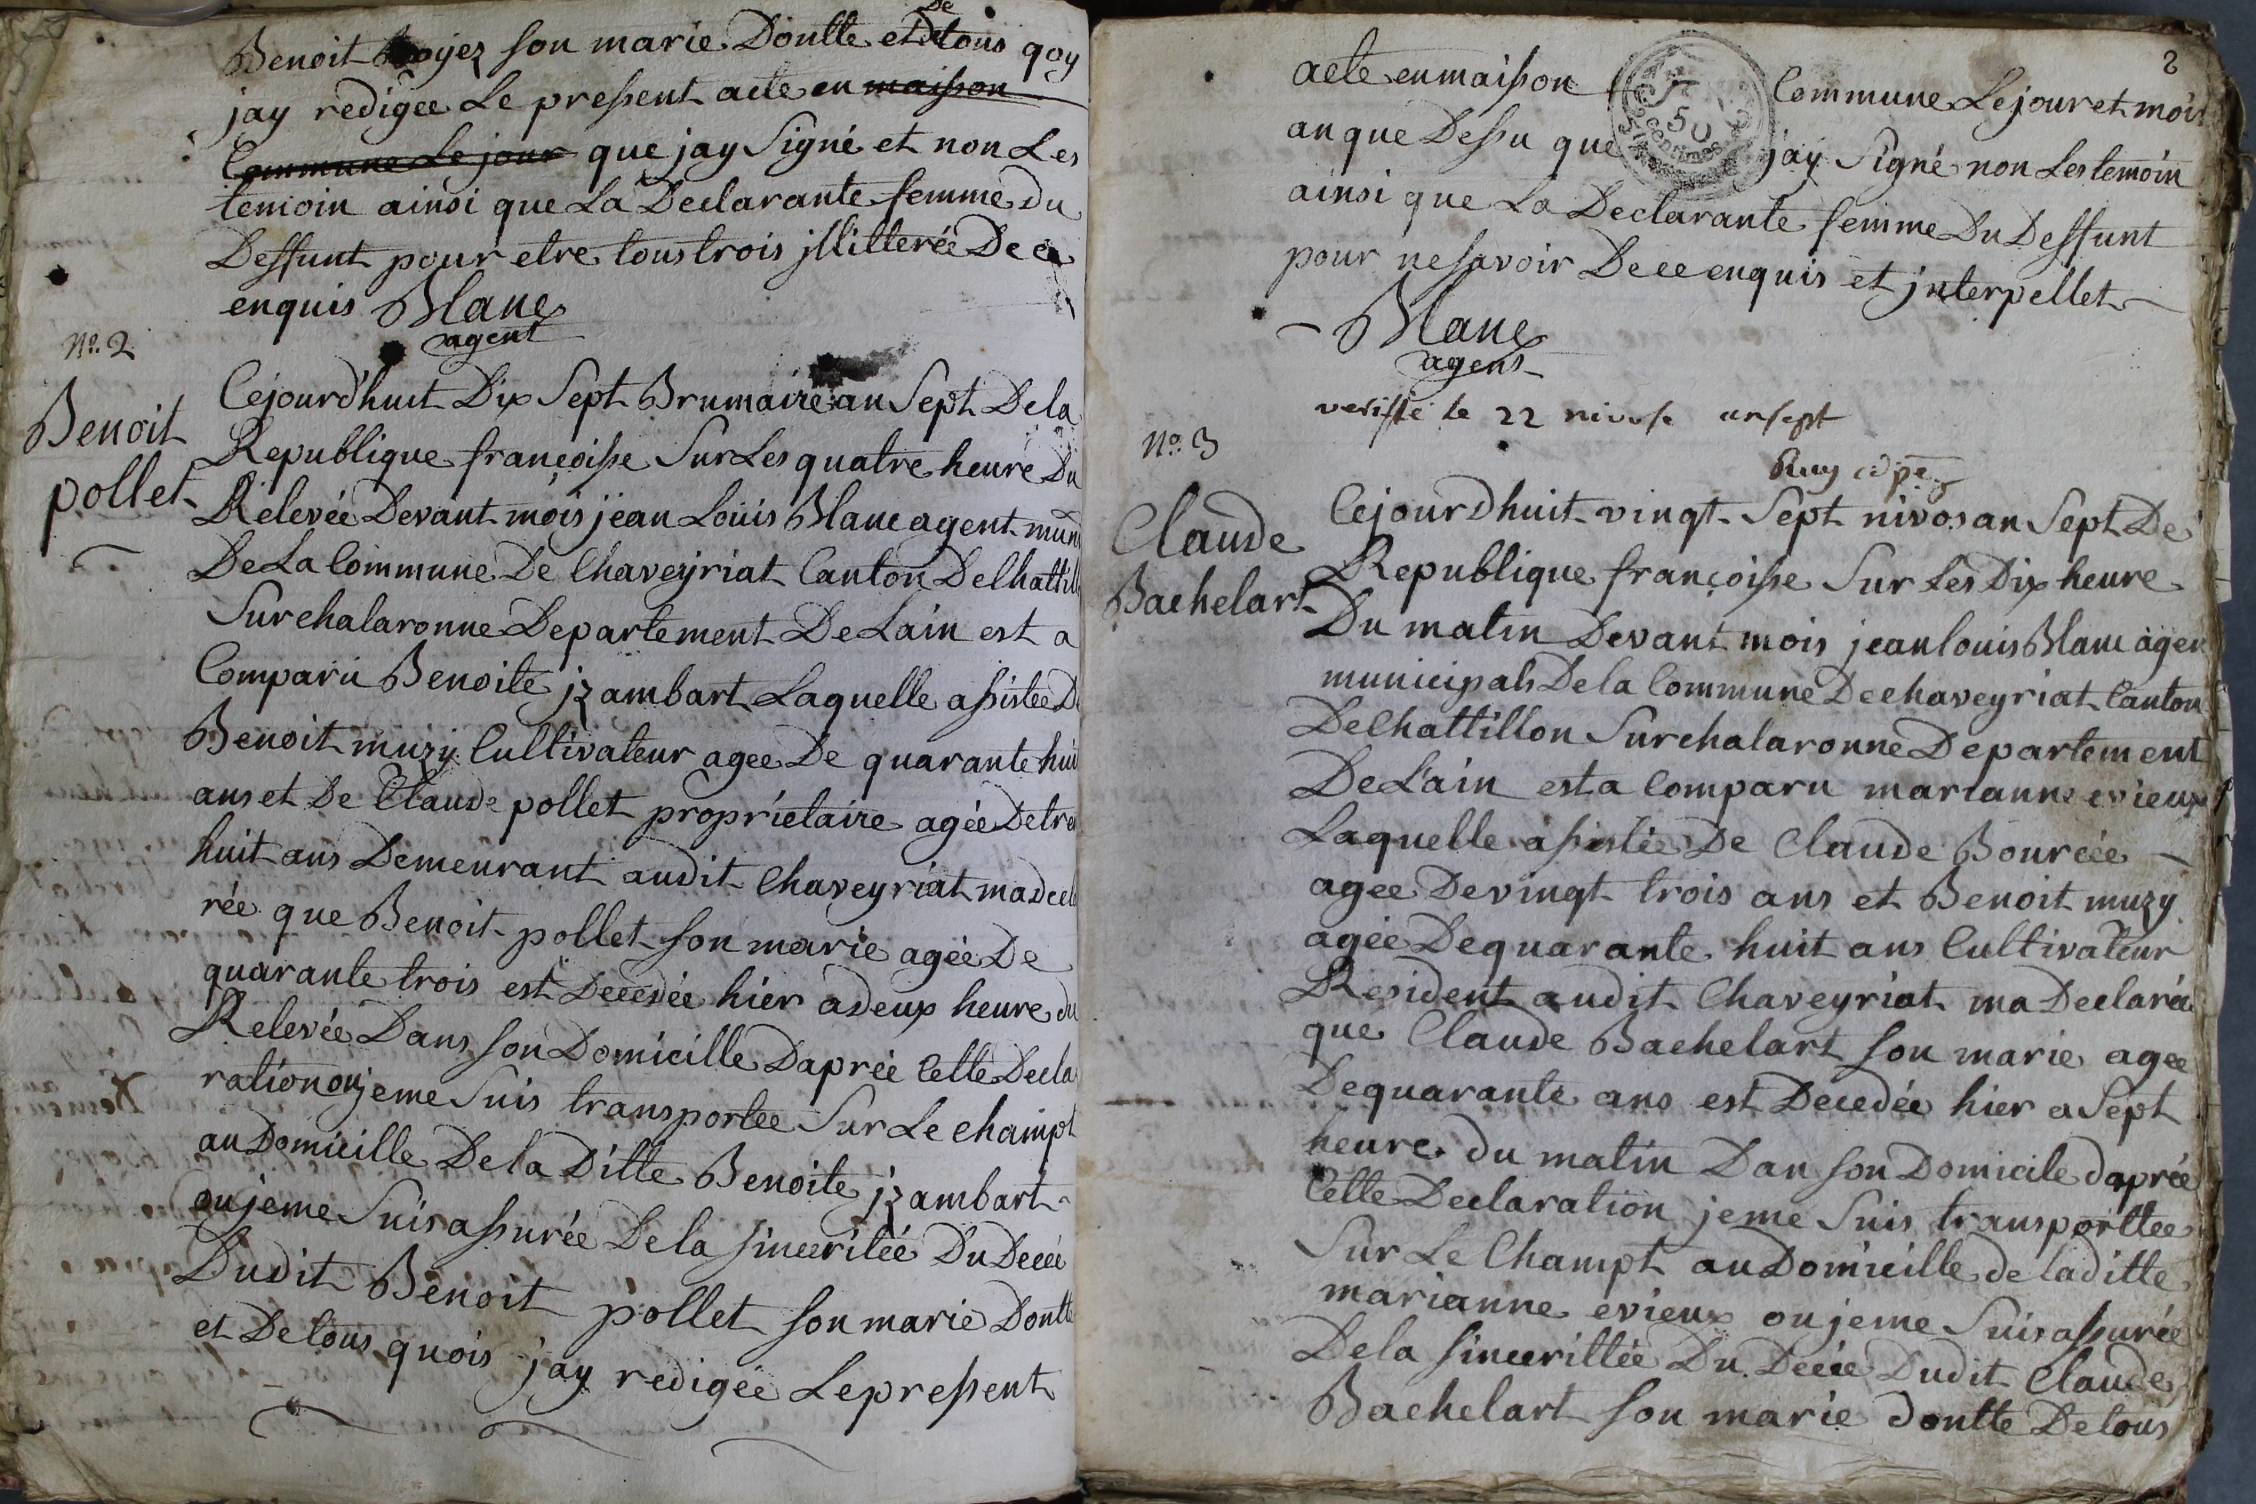 Benoit Boyez son marie Dontte et De tous qoy
jay redigee Le present acte en maison
Commune Le jour que jay Signé et non Les
temoin ainsi que La Declarante femme Du
Deffunt pour etre tous trois jllitterée De ce
enquis Blanc
agent
N° 2
Benoit
pollet
Cejourd'huit Dix Sept Brumaire an Sept De la
Republique françoisse Sur Les quatre heure Du
Relevée Devant mois jean Louis Blanc agent mun
De La Commune De Chaveyriat Canton De Chattill
Sur chalaronne Departement De Lain est a
Comparu Benoite jzambart Laquelle assistée De
Benoit muzy Cultivateur agee De quarante huit
ans et De Claude pollet proprietaire agée De tre
huit ans Demeurant audit Chaveyriat ma decla
rée que Benoit pollet son marie agée De
quarante trois est Decedée hier a deux heure du
Relevée Dans son Domicille Daprée Cette Decla
ration ou je me Suis transportee Sur Le champt
au Domicille De la Ditte Benoite jzambart
ou je me Suis assurée De la sinceritée Du Decée
Dudit Benoit pollet son marie Dontte
et De tous quois jay redigée Le present
2
acte en maison Commune Le jour et mois
an que Dessu que jay Signé non Les temoin
ainsi que La Declarante femme Du Deffunt
pour ne savoir De ce enquis et jnterpellet
Blanc
agent
50
centimes
verifié le 22 nivose an sept
N° 3
Claude
Bachelart
Cejourdhuit vingt Sept nivos an Sept De
Republique françoisse Sur Les Dix heure
Du matin Devant mois jean louis Blanc agen
municipals De la Commune De chaveyriat Canton
De Chattillon Sur chalaronne Departement
De L'ain est a Comparu marianne evieux
Laquelle assistée De Claude Bourcée
agee De vingt trois ans et Benoit muzy
agée De quarante huit ans Cultivateur
Resident audit Chaveyriat ma Declarée
que Claude Bachelart son marie agee
De quarante ans est Decedée hier a Sept
heure du matin Dan son Domicile daprée
Cette Declaration je me Suis transporttee
Sur Le Champt au Domicille de laditte
marianne evieux ou je me Suis assurée
De la sincerittée Du Decée Dudit Claude
Bachelart son marie dontte De tous